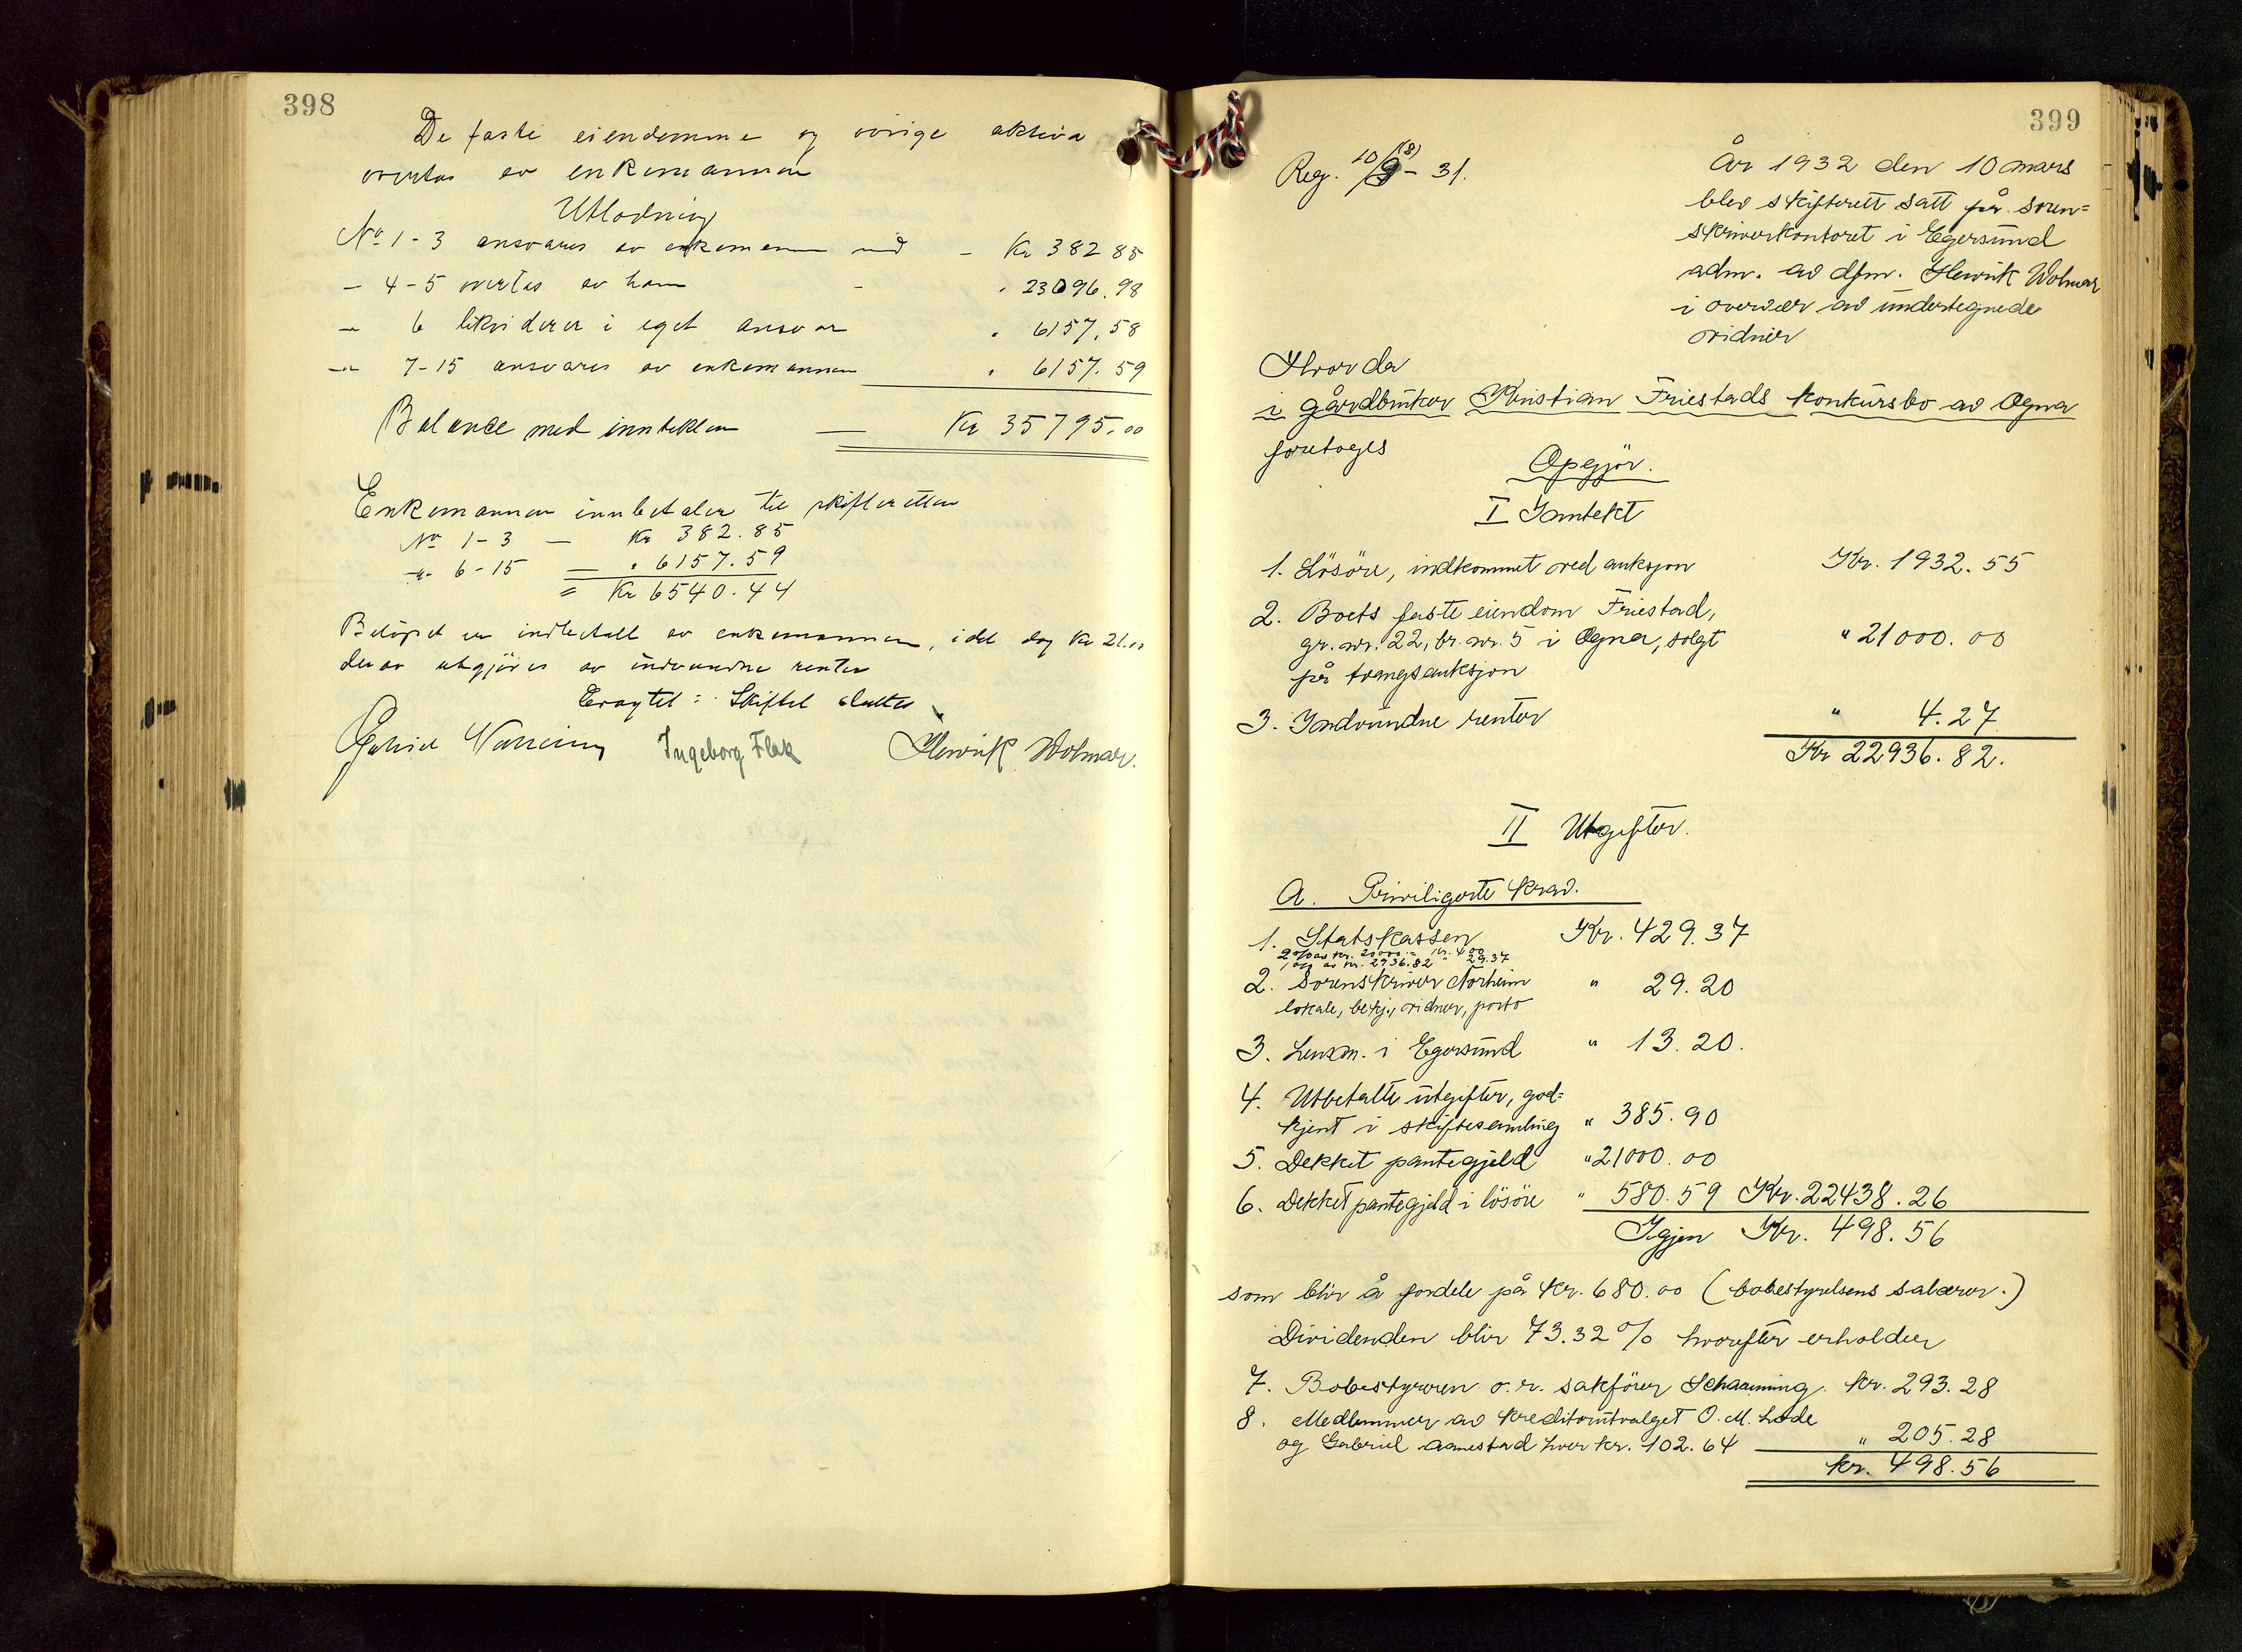 398
De faste eiendomme og øvrige aktiva
overtas av enkemannen
Utlodning
No 1-3 ansvares av enkemannen med - Kr 382 85
- 4-5 overtas av ham - " 23096.98
-"- 6 likviderer i eget ansvar " 6157.58
-"- 7-15 ansvares av enkemannen " 6157.59
Balance med inntekten — Kr 35795.00
Enkemannen innbetaler til skifteretten
No 1-3 — Kr 382.85
-"- 6-15 — " 6157.59
= Kr 6540.44
Beløpet er indbetalt av enkemannen, i det dog Kr 21.00
derav utgjøres av indvundne renter
Eragtet: Skiftet sluttes
Ingeborg Flak Henrik Wolmar.
399
Reg. 10/9 (8) - 31.
År 1932 den 10 mars
blev skifterett satt på soren=
skriverkontoret i Egersund
adm. av dfm. Henrik Wolmar
i overvær av undertegnede
vidner
Hvor da
i gårdbruker Kristian Friestads konkursbo av Ogna
foretoges
Opgjör.
I Inntekt
1. Lösöre, indkommet ved auksjon Kr. 1932.55
2. Boets faste eiendom Friestad,
gr. nr. 22, br. nr. 5 i Ogna, solgt " 21000.00
på tvangsauksjon
3. Indvundne renter " 4.27
Kr 22936.82.
II Utgifter.
A. Priviligerte krav.
1. Statskassen Kr. 429.37
2% av kr. 20000.- kr. 400
1% av kr. 2936.82 " 29.37
2. Sorenskriver Norheim " 29.20
lokale, bekj., vidner, porto
3. Lensm. i Egersund " 13.20.
4. Utbetalte utgifter, god=
kjent i skiftesamling " 385.90
5. Dekket pantegjeld " 21000.00
6. Dekket pantegjeld i lösöre " 580.59 Kr. 22438.26
Igjen Kr. 498.56
som blir å fordele på kr. 680.00 (bobestyrelsens salærer.)
Dividenden blir 73.32% hvorefter erholder
7. Bobestyreren o.r. sakförer Schaanning. kr. 293.28
8. Medlemmer av kreditorutvalget O. M. Lode
og Gabriel Aanestad hver kr. 102.64 " 205.28
kr. 498.56